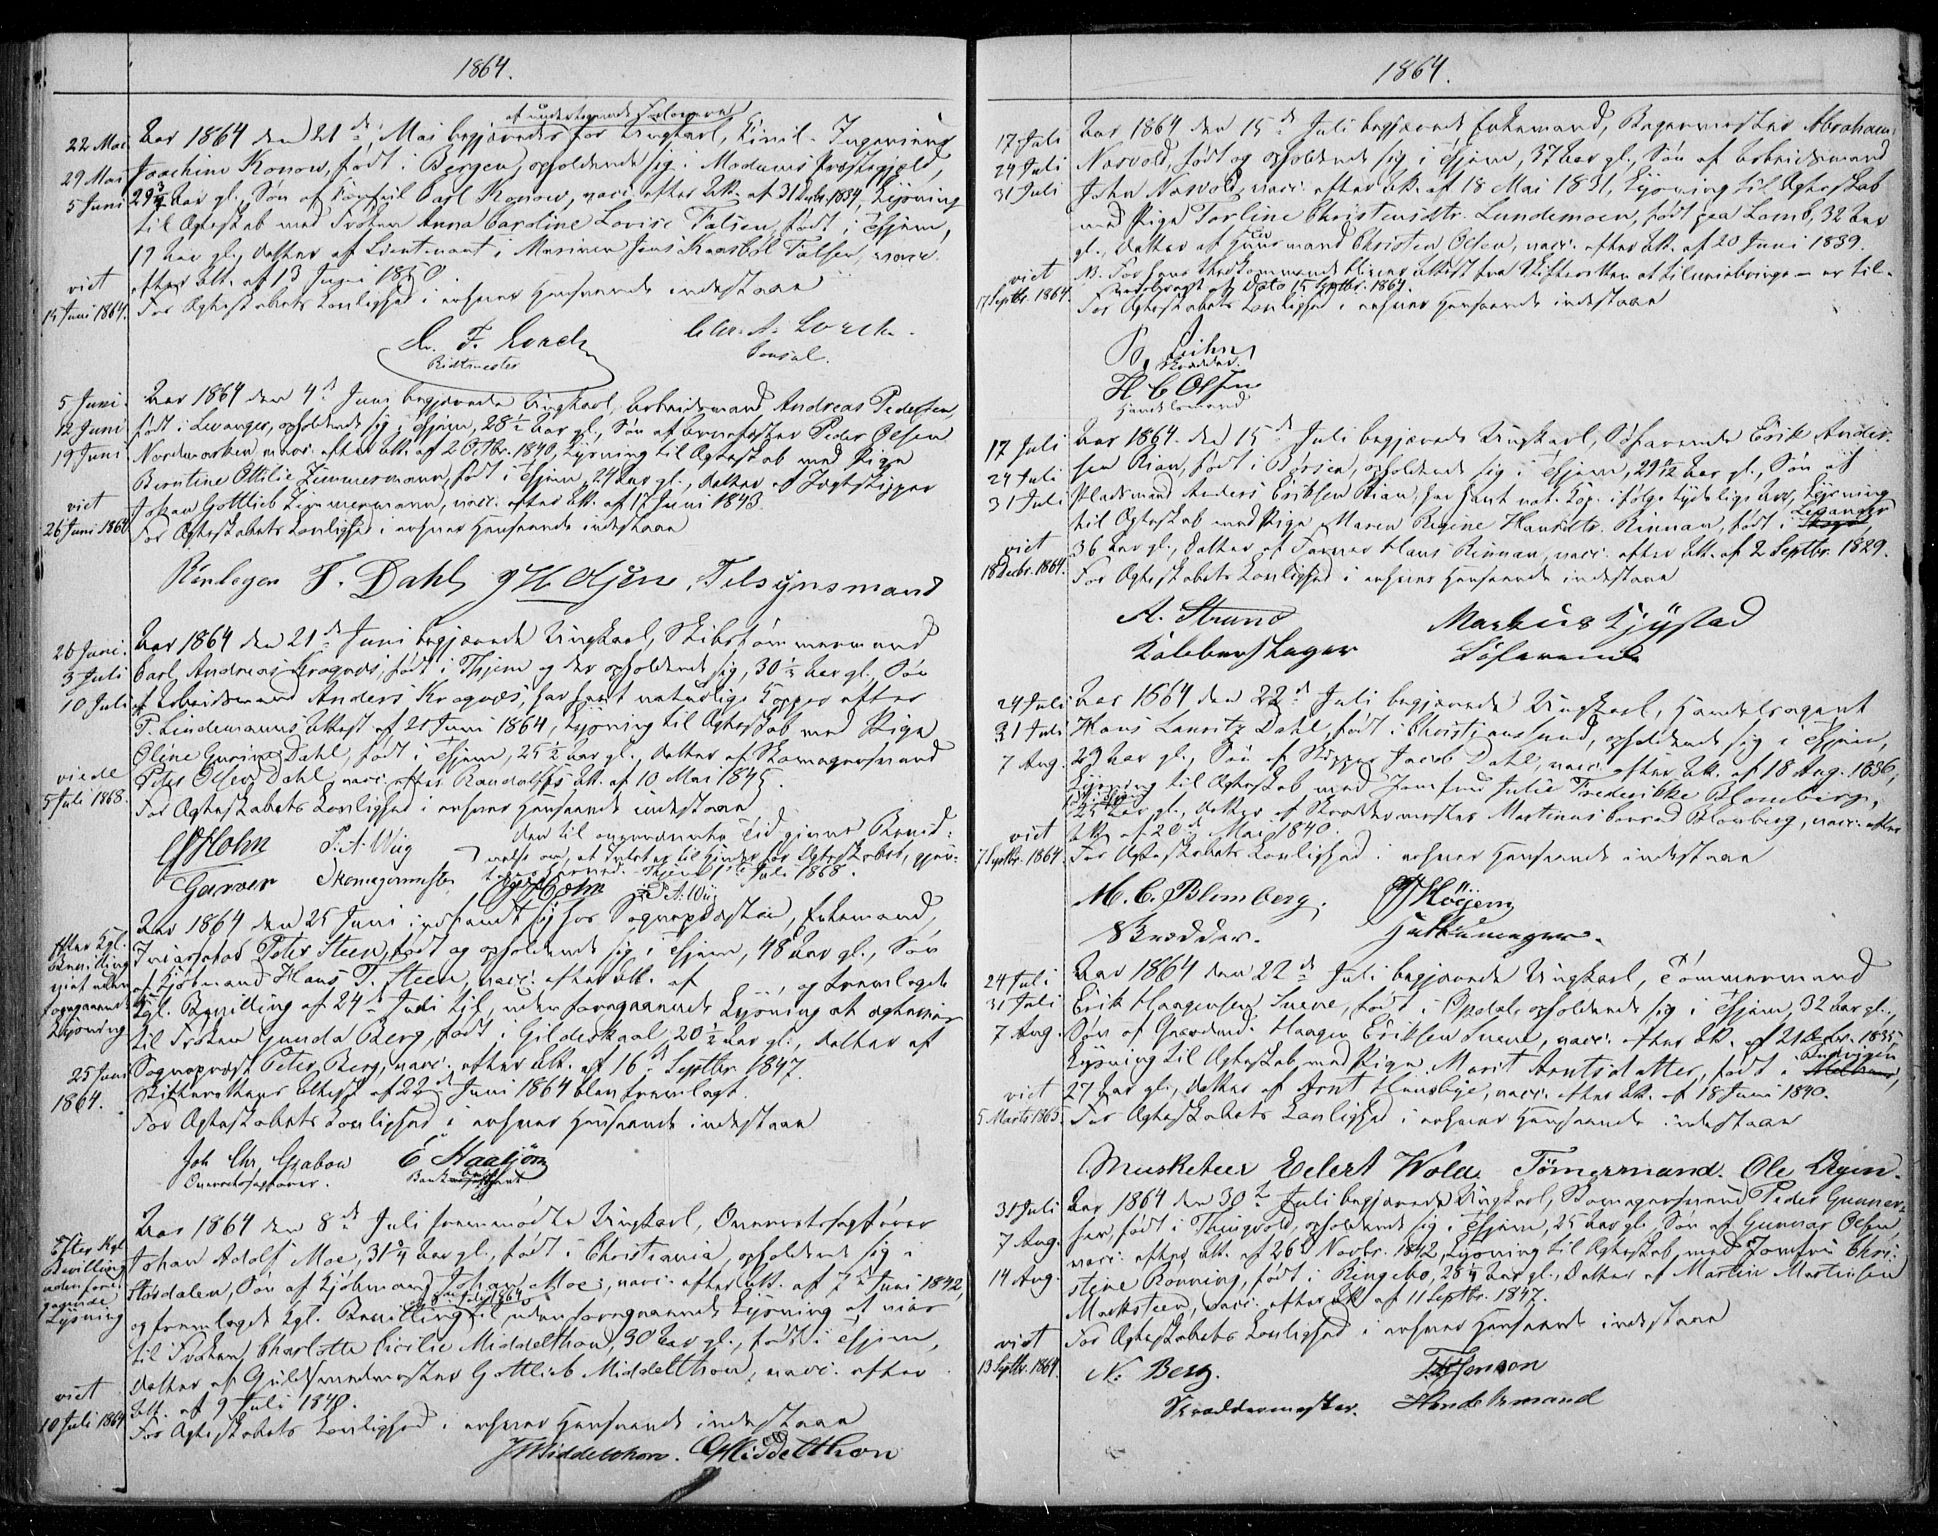 1864.
af undertegnede Forlovere
22 Mai Aar 1864 den 21de Mai begjæredes for Ungkarl, Civil-Ingenieur
29 Mai Joachim Konow, født i Bergen, opholdende sig i Modums Præstegjæld,
5 Juni 29 3/4 Aar gl., Søn af Consul Carl Konow, vacc. efter Att. af 31 Decbr. 1834, Lysning
til Ægteskab med Frøken Anna Caroline Lovise Falsen, født i Thjem,
19 Aar gl., Datter af Lieutenant i Marinen Jens Kraabøl Falsen, vacc.
viet efter Att. af 13 Juni 1850.
15 Juni 1864. For Ægteskabets Lovlighed i enhver Henseende indestaae
C. F. Lorck Chr. A. Lorck.
Ridtmester Consul.
5 Juni Aar 1864 den 4de Juni begjærede Ungkarl, Arbeidsmand Andreas Pedersen,
12 Juni født i Levanger, opholdende sig i Thjem, 28 1/2 Aar gl., Søn af Peder Olsen
19 Juni Nordmarken, vacc. efter Att. af 2 Octbr. 1840, Lysning til Ægteskab med Pige
Berntine Ottilie Zimmermann, født i Thjem, 24 Aar gl., Datter af Jægtskipper
viet Johan Gottlieb Zimmermann, vacc. efter Att. af 17 Juni 1843.
26 Juni 1864 For Ægteskabets Lovlighed i enhver Henseende indestaae
T. Dahl J H Olsen, Tilsynsmand
26 Juni Aar 1864 den 21de Juni begjærede Ungkarl, Skibstømmermand
3 Juli Carl Andreas Krognæs, født i Thjem og der opholdende sig, 30 1/2 Aar gl., Søn
10 Juli af Arbeidsmand Anders Krognæs, har havt naturlige Kopper efter
T. Lindemanns Attest af 21 Juni 1864, Lysning til Ægteskab med Pige
Oline Gurine Dahl, født i Thjem, 25 1/2 Aar gl., Datter af Skomagersvend
viede Peter Olsen Dahl, vacc. efter Randolffs Att. af 10 Mai 1845.
5 Juli 1868. For Ægteskabets Lovlighed i enhver Henseende indestaae
Holm P. A. Wiig den til ovennævnte Tid givne
Garver Skomagermester om, at Intet er til Hinder for Ægteskabet,
Thjem 1ste Juli 1868.
Holm P. A. Wiig
Aar 1864 den 25 Juni indfandt sig hos Sognepræsten, Enkemand,
Efter Kgl. Peter Steen, født og opholdende sig i Thjem, 48 Aar gl., Søn
Bevilling af Kjøbmand Hans T. Steen, vacc. efter Att. af og fremlagde
viet uden foregaaende Lysning Kgl. Bevilling af 24de Juni til, uden foregaaende Lysning at ægtevies
til Frøken Gunda Berg, født i Gildeskaal, 20 1/2 Aar gl., Datter af
25 Juni Sognepræst Peter Berg, vacc. efter Att. af 16de Septbr. 1847.
1864. Skifterettens Attest af 22de Juni 1864 blev fremlagt.
For Ægteskabets Lovlighed i enhver Henseende indestaae
Joh Chr. Grabow E Haagjørn
Overretssagfører. Bank
Aar 1864 den 8de Juli fremmødte Ungkarl, Overretssagfører
Efter Kgl. Johan Adolf Moe, 31 3/4 Aar gl., født i Christiania, opholdende sig i
Bevilling Størdalen, Søn af Kjøbmand Johan Moe, vacc. efter Att. af 7de Juni 1842,
uden foregaaende Lysning og fremlagde Kgl. Bevilling til uden foregaaende Lysning at vies
til Frøken Charlotte Cicilie Middelthon, 30 Aar gl., født i Thjem,
Datter af Guldsmedmester Gottlieb Middelthon, vacc. efter
viet Att. af 9 Juli 1840.
10 Juli 1864 For Ægteskabets Lovlighed i enhver Henseende indestaae
J Middelthon. G Middelthon
1864.
17 Juli Aar 1864 den 15de Juli begjærede Enkemand, Bagermester Abraham
24 Juli Næsvold, født og opholdende sig i Thjem, 37 Aar gl., Søn af Arbeidsmand
31 Juli John Næsvold, vacc. efter Att. af 18 Mai 1831, Lysning til Ægteskab
med Pige Torline Christensdtr. Lundemoen, født paa Lamb, 32 Aar
gl., Datter af Huusmand Christen Olsen, vacc. efter Att. af 20 Juni 1839.
viet Attest fra Skifteretten at tilveiebringe – er til-
17 Septbr. 1864. veiebragt af Dato 15 Septbr. 1864.
For Ægteskabets Lovlighed i enhver Henseende indestaae
Skrædder.
H C Olsen
Handelsmand
17 Juli Aar 1864 den 15de Juli begjærede Ungkarl, Søfarende Erik Ander-
24 Juli sen Rian, født i Børsen, opholdende sig i Thjem, 29 Aar gl., Søn af
31 Juli Pladsmand Anders Eriksen Rian, har havt nat. Kop. ifølge tydelige Ar, Lysning
til Ægteskab med Pige Maren Regine Hansdtr. Rinnan, født i Levanger
viet 36 Aar gl., Datter af Farver Hans Rinnan, vacc. efter Att. af 2 Septbr. 1829.
18 Decbr. 1864. For Ægteskabets Lovlighed i enhver Henseende indestaae
A. Strand Markus Kjystad
Kobberslager Søfarende
24 Juli Aar 1864 den 22de Juli begjærede Ungkarl, Handelsagent
31 Juli Hans Lauritz Dahl, født i Christianssund, opholdende sig i Thjem,
7 Aug. 29 Aar gl., Søn af Skipper Jacob Dahl, vacc. efter Att. af 18 Aug. 1836,
Lysning til Ægteskab med Jomfru Julie Frederikke Blomberg,
25 Aar gl., Datter af Skræddermester Martinus Conrad Blomberg, vacc. efter
viet Att. af 20de Mai 1840.
7 Septbr. 1864 For Ægteskabets Lovlighed i enhver Henseende indestaae
M. C. Blomberg. Höÿem
Skrædder. Hattemager.
24 Juli Aar 1864 den 22de Juli begjærede Ungkarl, Tømmermand
31 Juli Erik Haagensen Sneve, født i Opdal, opholdende sig i Thjem, 32 Aar gl.,
7 Aug. Søn af Gaardmd. Haagen Eriksen Sneve, vacc. efter Att. af 21 Decbr. 1835,
Lysning til Ægteskab med Pige Marit Arntsdatter, født i
viet 27 Aar gl., Datter af Arnt Haugslye, vacc. efter Att. af 18 Juni 1840.
5 Marts 1865. For Ægteskabets Lovlighed i enhver Henseende indestaae
Musketeer Edert Wold. Tömermand. Ole Øyen.
31 Juli Aar 1864 den 30te Juli begjærede Ungkarl, Skomagersvend Peder Gunner-
7 Aug. sen, født i Thingvold, opholdende sig i Thjem, 25 Aar gl., Søn af Gunnar Olsen,
14 Aug. vacc. efter Att. af 26de Novbr. 1842, Lysning til Ægteskab med Jomfru Chri-
stine Rønning, født i Ringebo, 28 1/4 Aar gl., Datter af Martin Martinsen
Marksteen, vacc. efter Att. af 11 Septbr. 1847.
viet For Ægteskabets Lovlighed i enhver Henseende indestaae
13 Septbr. 1864. N. Berg. Jenson
Skræddermester. Handelsmand